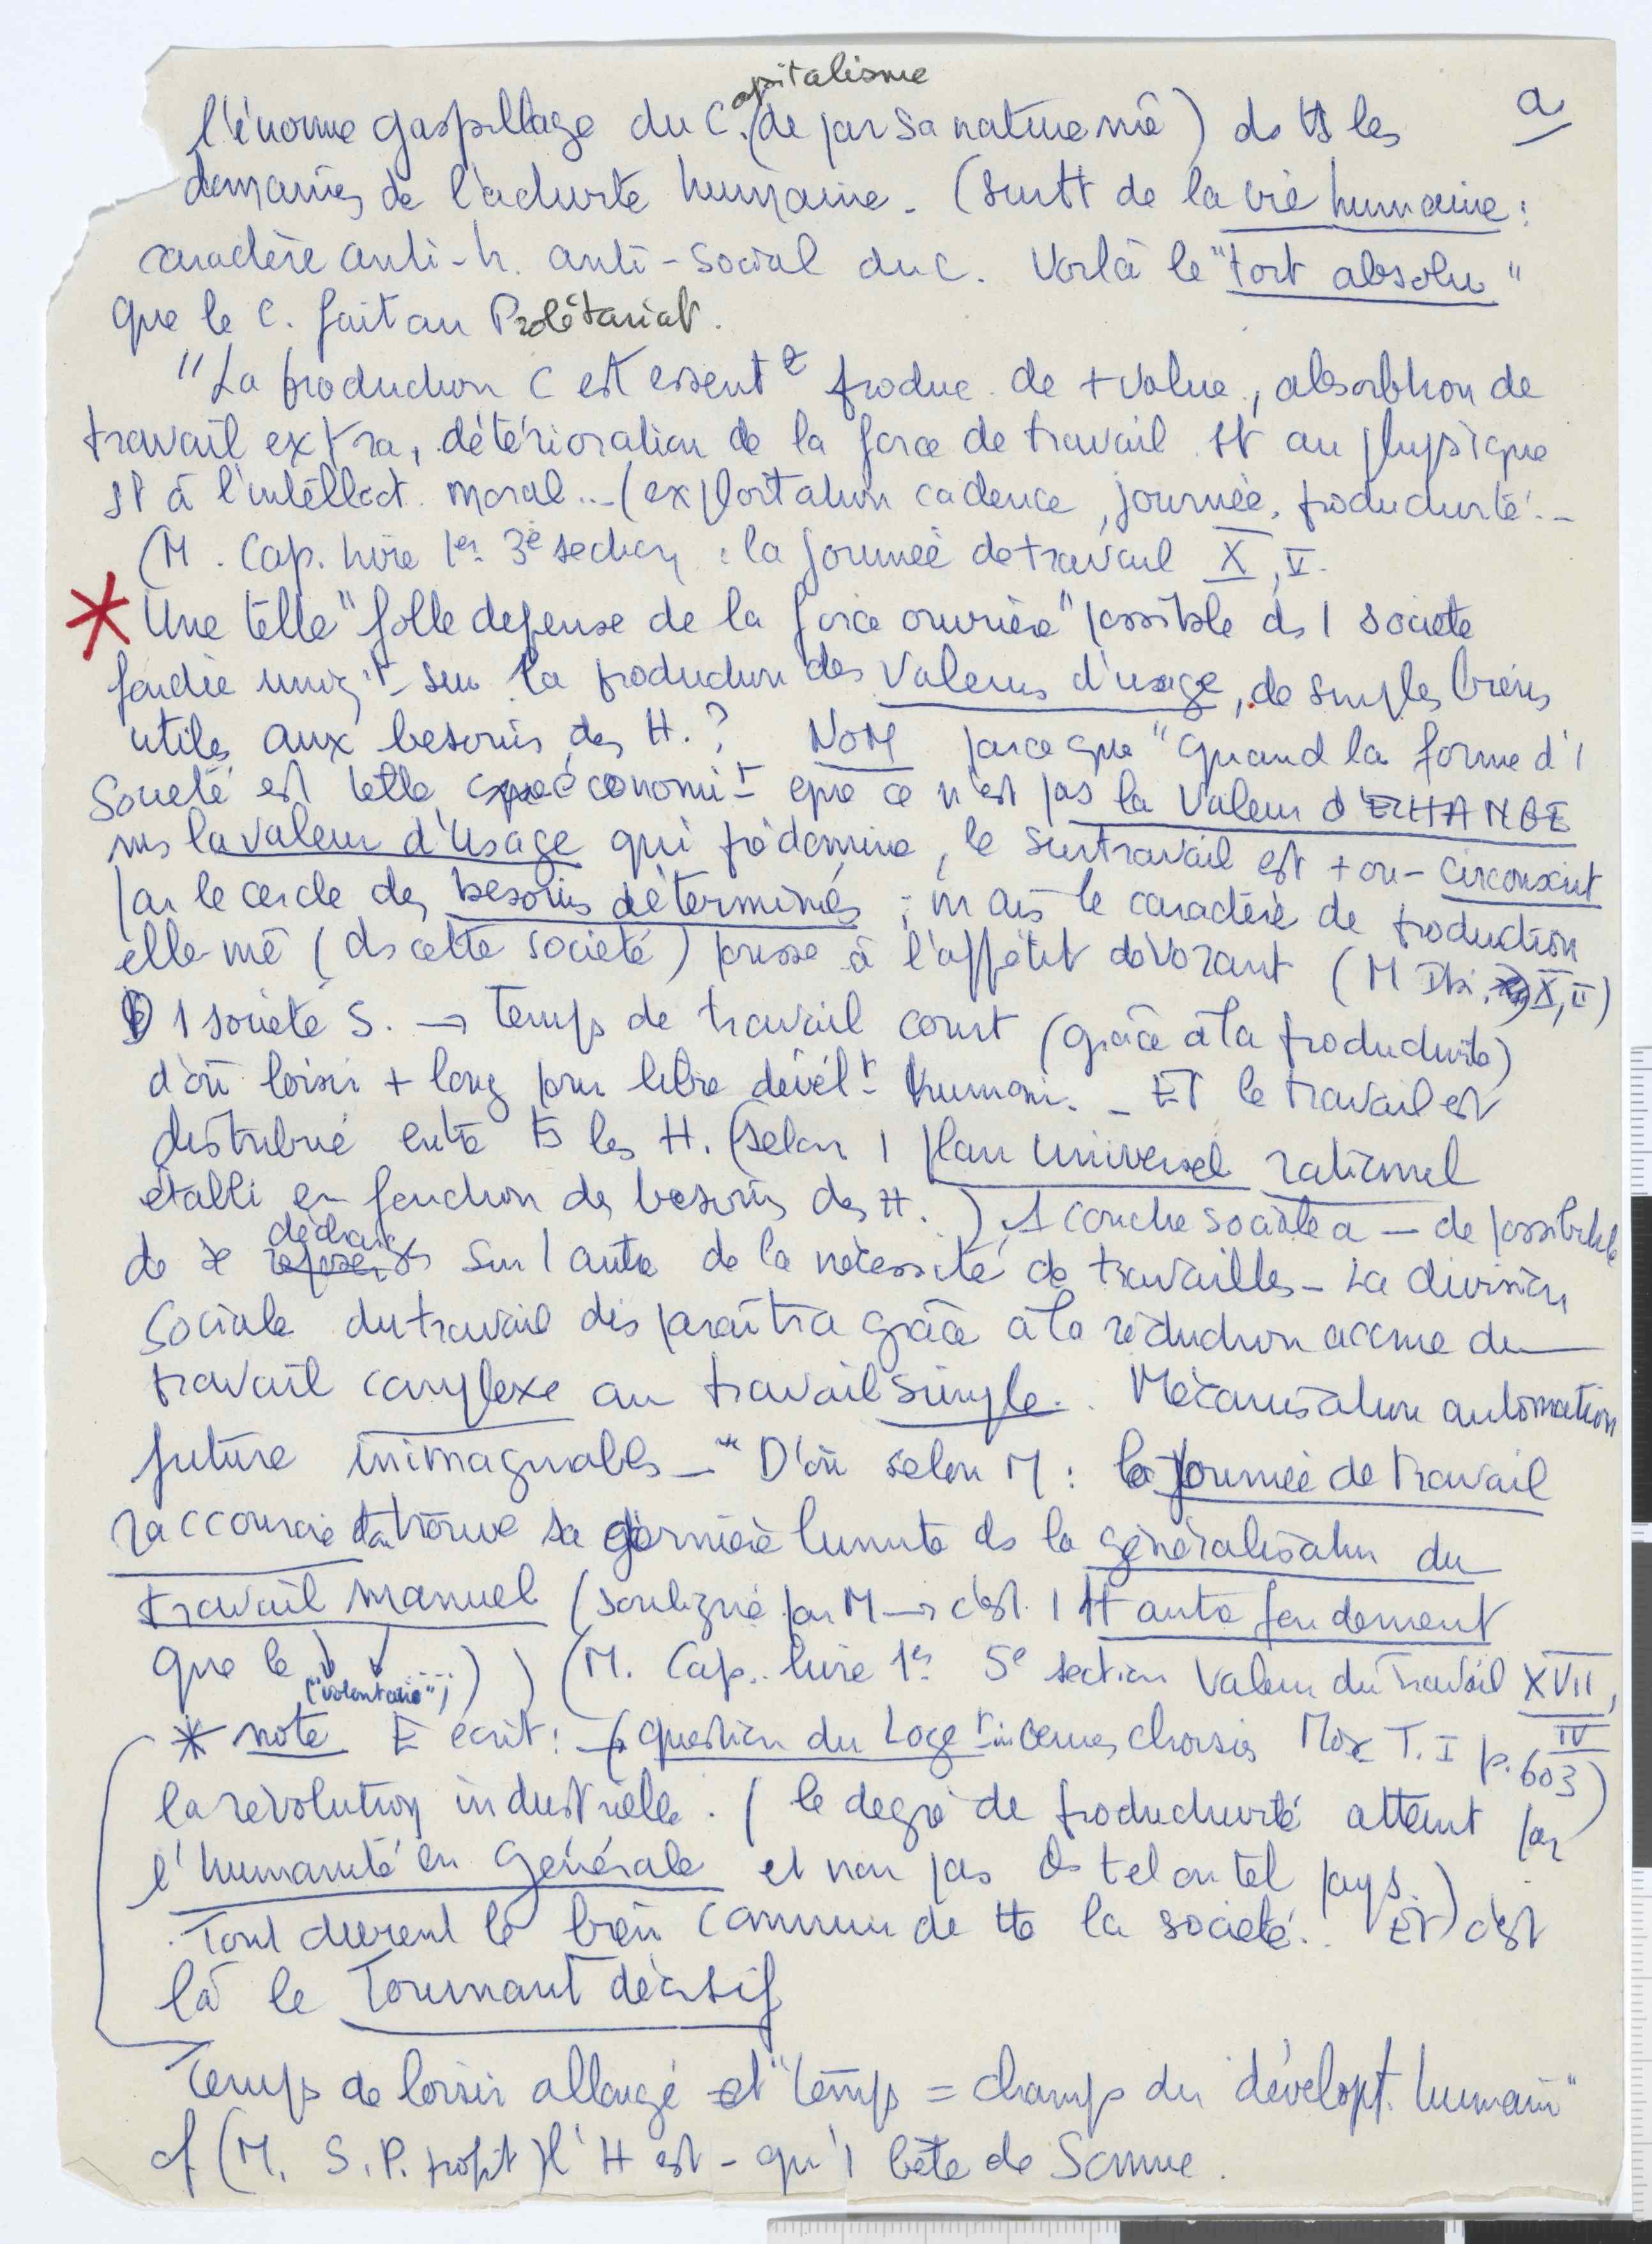 a
l'énorme gaspillage du Capitalisme (de par sa nature mê) ds ts les
domaines de l'activité humaine. (surtt de la vie humaine :
caractère anti-h. anti-social du C. Voilà le "tort absolu"
que le C. fait au Prolétariat.
"La production C est essentt produc. de + value, absorbtion de
travail extra, détérioration de la force de travail st au physique
st à l'intellect. moral... (exploitation cadence, journée, productivité...
(M. Cap. livre 1er 3e section : la journée de travail X, V.
* Une telle "folle dépense de la force ouvrière" possible ds 1 société
fondée uniqt sur la production des valeurs d'usage, de simples biens
utiles aux besoins des H. ? NON parce que "Quand la forme d'1
Société est telle, économit que ce n'est pas la valeur d'ECHANGE
ms la valeur d'usage qui prédomine, le surtravail est + ou - circonscrit
par le cercle des besoins déterminés ; mais le caractère de production
elle-mê (ds cette société) pousse à l'appétit dévorant (M Ibi. X, II)
1 société S. → Temps de travail court (grâce à la productivité)
d'où loisir + long pour libre dévelt humain. - ET le travail est
distribué entre ts les H. (selon 1 plan universel rationnel
établi en fonction des besoins des H. ), 1 couche sociale a - de possibilité
de se décharger sur l'autre de la nécessité de travailler - La division
Sociale du travail disparaîtra grâce à la réduction accrue du
travail complexe au travail simple. Mécanisation automation
future inimaginables - "D'où selon M : la Journée de travail
raccourcie trouve sa dernière limite ds la généralisation du
travail manuel (souligné par M → c'est 1 H autre fondement
que le ("volontaire") ) ) (M. Cap. livre 1er 5e section Valeur du Travail XVII,
IV
* note E écrit : (question du Logt in Oeuvres choisies Mox T. I p. 603)
la révolution industrielle. (le degré de productivité atteint par
l'humanité en générale et non pas ds tel ou tel pays.)
Tout devient le bien commun de tte la société. ET c'est
là le Tournant décisif
Temps de loisir allongé et "temps = champs du dévelopt. humain"
cf (M. S.P. profit) l'H est - qu'1 bête de Somme.